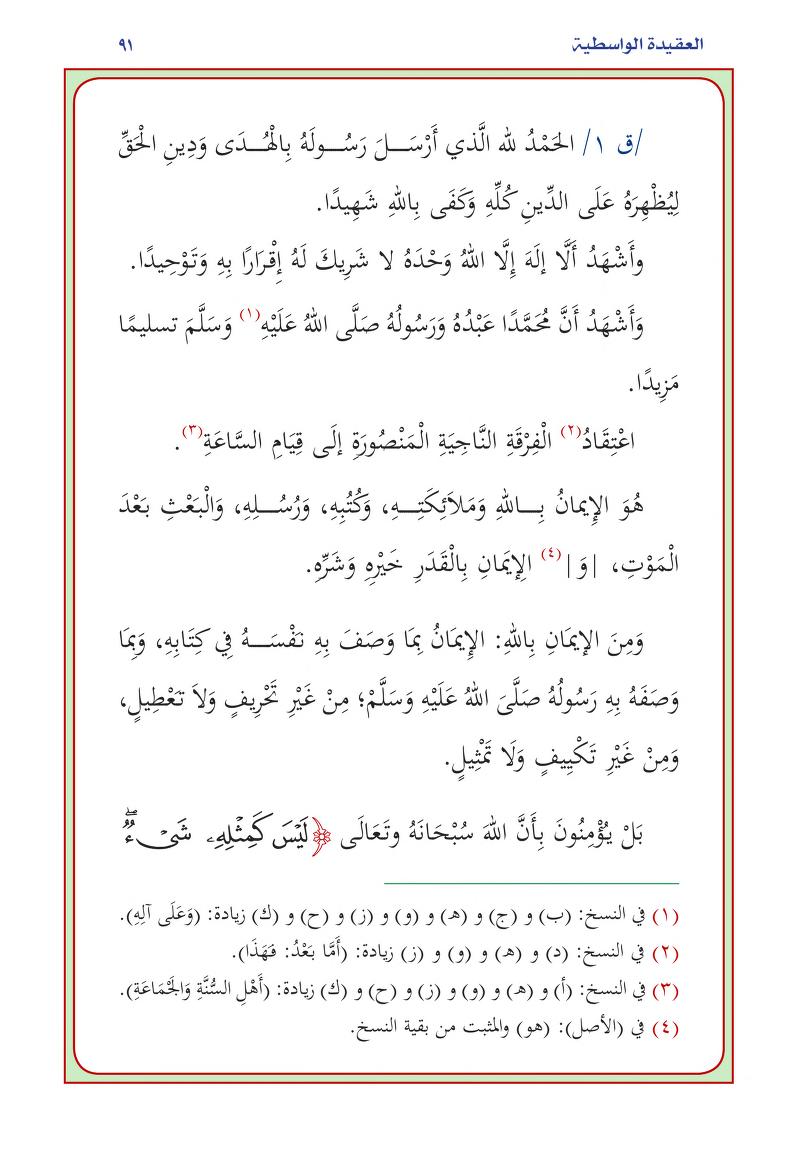 العقيدة الواسطية ٩١
/ق ١/ الحَمْدُ لله الَّذي أَرْسَـــلَ رَسُـــولَهُ بِالْهُـــدَى وَدِينِ الْحَقِّ
لِيُظْهِرَهُ عَلَى الدِّينِ كُلِّهِ وَكَفَى بِاللهِ شَهِيدًا.
وأَشْهَدُ أَلَّا إلَهَ إِلَّا اللهُ وَحْدَهُ لا شَرِيكَ لَهُ إِقْرَارًا بِهِ وَتَوْحِيدًا.
وَأَشْهَدُ أَنَّ مُحَمَّدًا عَبْدُهُ وَرَسُولُهُ صَلَّى اللهُ عَلَيْهِ(١) وَسَلَّمَ تسليمًا
مَزِيدًا.
اعْتِقَادُ(٢) الْفِرْقَةِ النَّاجِيَةِ الْمَنْصُورَةِ إلَى قِيَامِ السَّاعَةِ(٣).
هُوَ الإِيمانُ بِـــاللهِ وَمَلاَئِكَتِـــهِ، وَكُتُبِهِ، وَرُسُـــلِهِ، وَالْبَعْثِ بَعْدَ
الْمَوْتِ، |وَ|(٤) الإِيمَانِ بِالْقَدَرِ خَيْرِهِ وَشَرِّهِ.
وَمِنَ الإيمَانِ بِاللهِ: الإِيمَانُ بِمَا وَصَفَ بِهِ نَفْسَـــهُ فِي كِتَابِهِ، وَبِمَا
وَصَفَهُ بِهِ رَسُولُهُ صَلَّىَ اللهُ عَلَيْهِ وَسَلَّمْ؛ مِنْ غَيْرِ تَحْرِيفٍ وَلاَ تَعْطِيلٍ،
وَمِنْ غَيْرِ تَكْيِيفٍ وَلَا تَمْثِيلٍ.
بَلْ يُؤْمِنُونَ بِأَنَّ اللهَ سُبْحَانَهُ وتَعَالَى ﴿لَيْسَ كَمِثْلِهِۦ شَىْءٌۖ
(١) في النسخ: (ب) و (ج) و (هـ) و (و) و (ز) و (ح) و (ك) زيادة: (وَعَلَى آلِهِ).
(٢) في النسخ: (د) و (هـ) و (و) و (ز) زيادة: (أَمَّا بَعْدُ: فَهَذَا).
(٣) في النسخ: (أ) و (هـ) و (و) و (ز) و (ح) و (ك) زيادة: (أَهْلِ السُّنَّةِ وَالجَْمَاعَةِ).
(٤) في (الأصل): (هو) والمثبت من بقية النسخ.